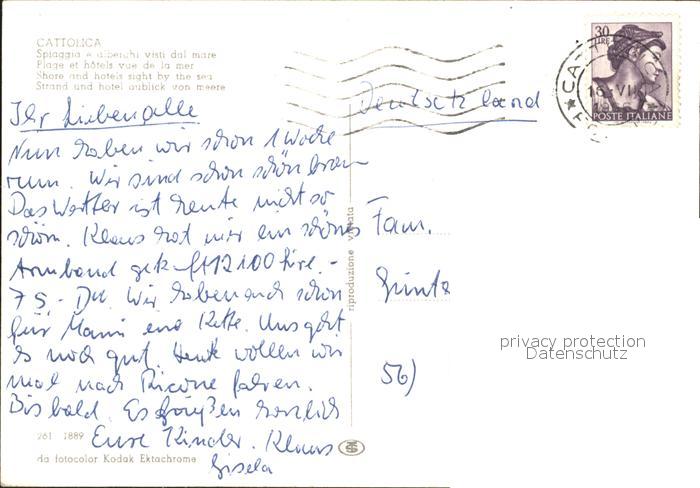 CATTOLICA
Spiaggia e alberghi visti dal mare
Plage et hôtels vue de la mer
Shore and hotels sight by the sea
Strand und hotel aublick von meere
Ihr Lieben alle
Nun haben wir schon 1 Woche
rum. Wir sind schon schön braun
Das Wetter ist heute nicht so
schön. Klaus hat mir ein schönes
Armband gek. 12 100 Lire. -
75,- DM. Wir haben auch schon
für Mami eine Kette. Uns geht
es noch gut. Heute wollen wir
mal nach Ricione fahren.
Bis bald. Es grüßen herzlich
Eure Kinder. Klaus
Gisela
261 1889
da fotocolor Kodak Ektachrome
riproduzione vietata
30
LIRE
POSTE ITALIANE
Deutschland
Fam.
Günt
56)
privacy protection
Datenschutz